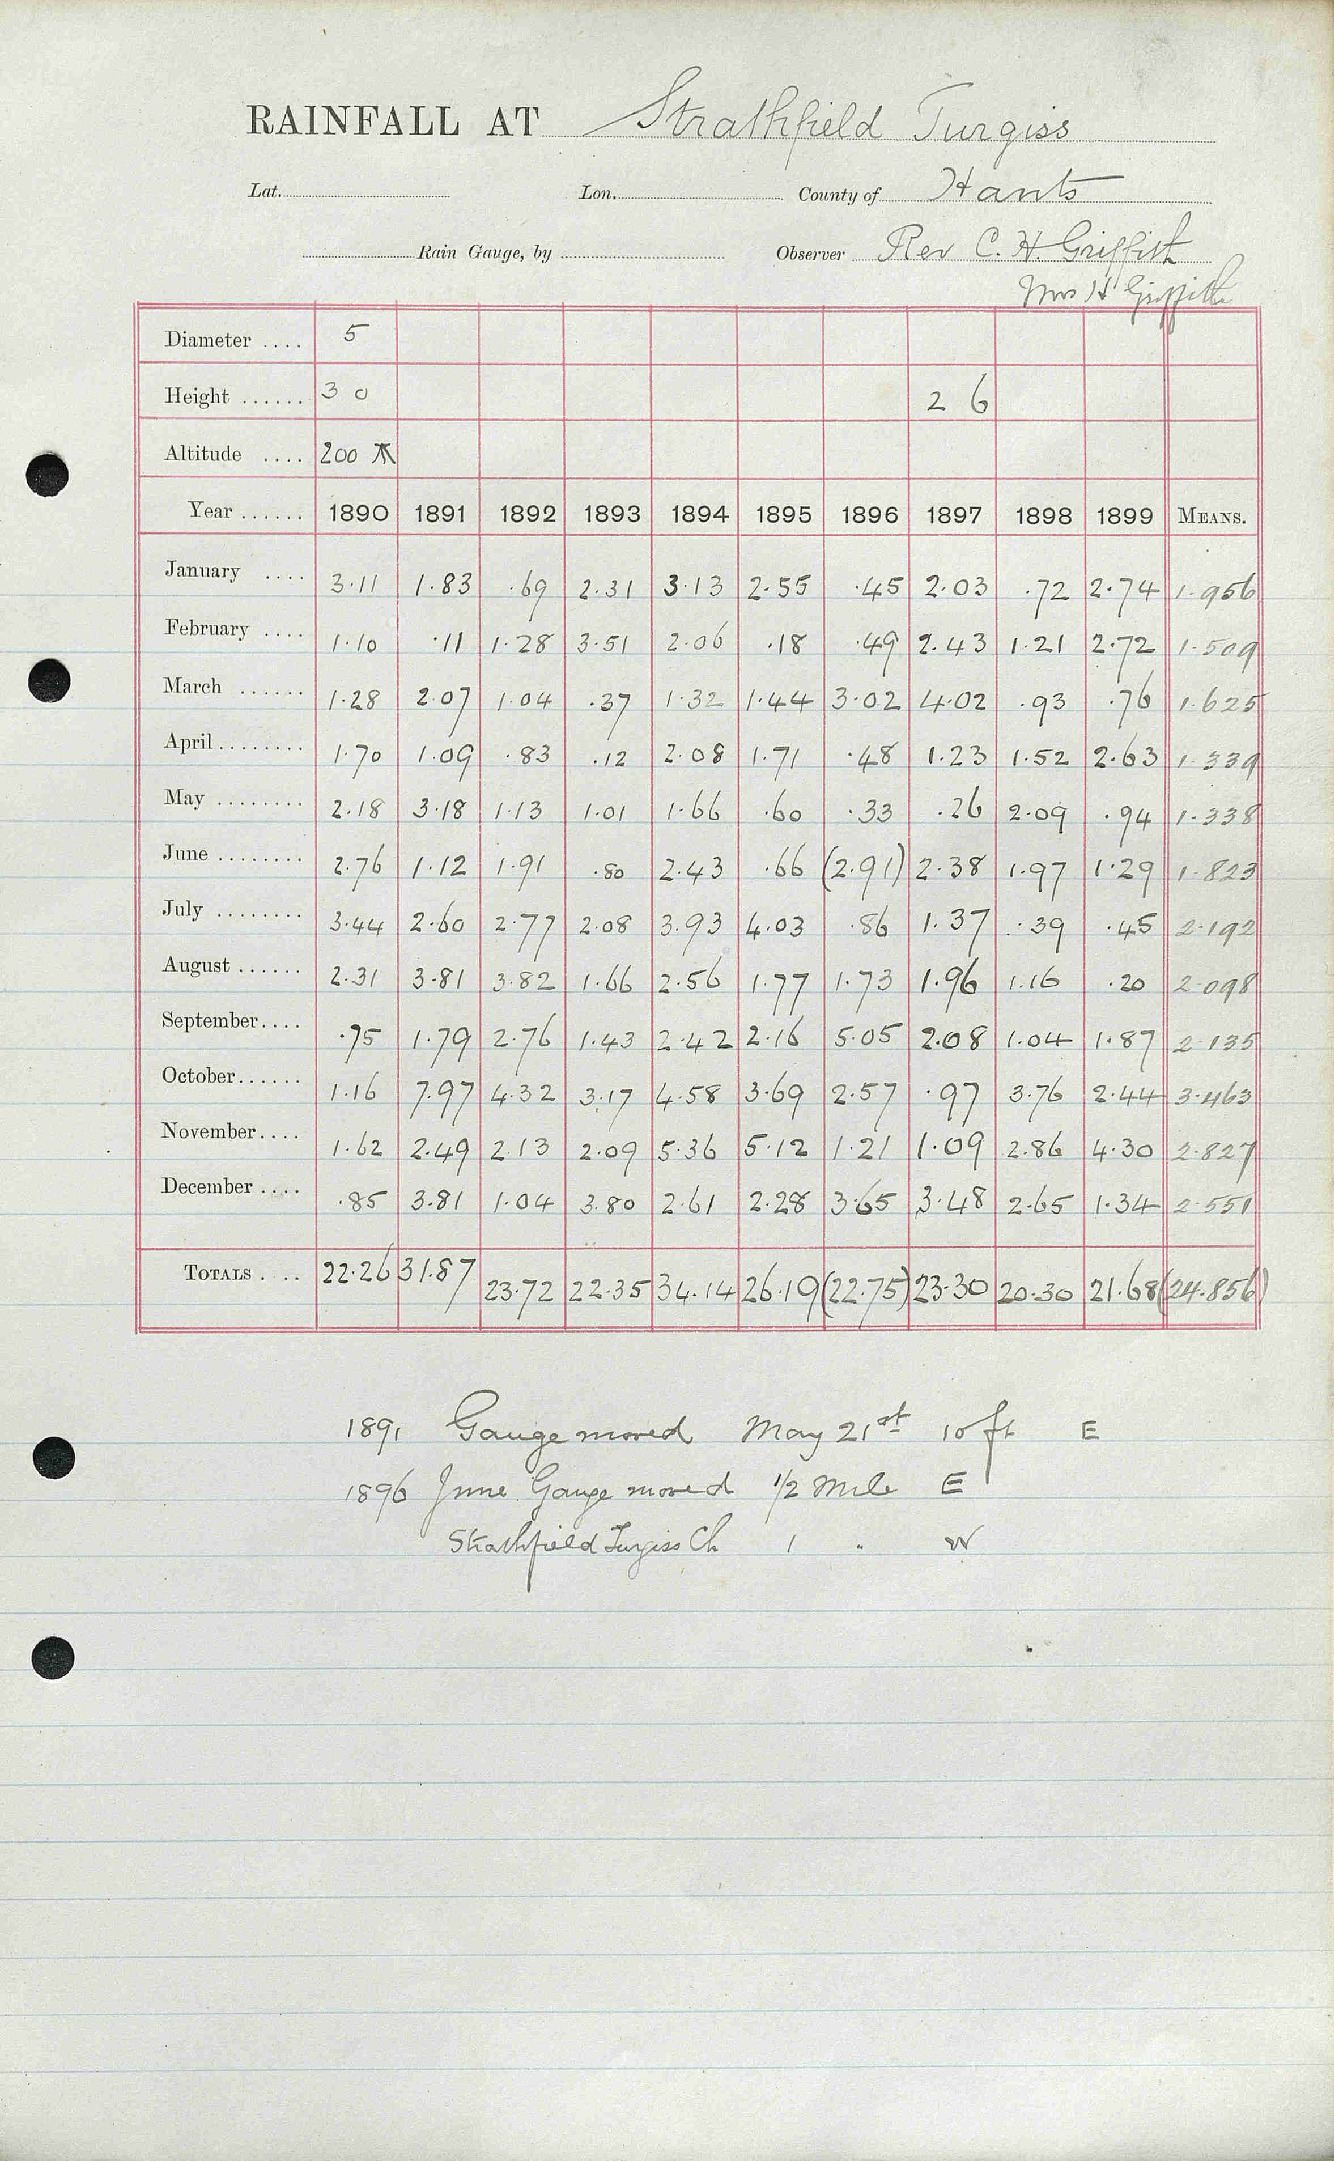 RAINFALL AT Strathfield Turgiss
Lat. Lon. County of Hants
Rain Gauge, by Observer Rev C. H. Griffith
Mrs H Griffith
Diameter .... 5
Height ...... 3 0 2 6
Altitude .... 200
Year ...... 1890 1891 1892 1893 1894 1895 1896 1897 1898 1899 MEANS.
January .... 3.11 1.83 .69 2.31 3.13 2.55 .45 2.03 .72 2.74 1.956
February .... 1.10 .11 1.28 3.51 2.06 .18 .49 2.43 1.21 2.72 1.509
March ...... 1.28 2.07 1.04 .37 1.32 1.44 3.02 4.02 .93 .76 1.625
April ........ 1.70 1.09 .83 .12 2.08 1.71 .48 1.23 1.52 2.63 1.339
May ........ 2.18 3.18 1.13 1.01 1.66 .60 .33 .26 2.09 .94 1.338
June ........ 2.76 1.12 1.91 .80 2.43 .66 (2.91) 2.38 1.97 1.29 1.823
July ........ 3.44 2.60 2.77 2.08 3.93 4.03 .86 1.37 .39 .45 2.192
August ...... 2.31 3.81 3.82 1.66 2.56 1.77 1.73 1.96 1.16 .20 2.098
September .... .75 1.79 2.76 1.43 2.42 2.16 5.05 2.08 1.04 1.87 2.135
October ...... 1.16 7.97 4.32 3.17 4.58 3.69 2.57 .97 3.76 2.44 3.463
November .... 1.62 2.49 2.13 2.09 5.36 5.12 1.21 1.09 2.86 4.30 2.827
December .... .85 3.81 1.04 3.80 2.61 2.28 3.65 3.48 2.65 1.34 2.551
TOTALS .... 22.26 31.87 23.72 22.35 34.14 26.19 (22.75) 23.30 20.30 21.68 (24.856)
1891 Gauge moved May 21st 10 ft E
1896 June Gauge moved 1/2 mile E
Strathfield Turgiss Ch 1 " W